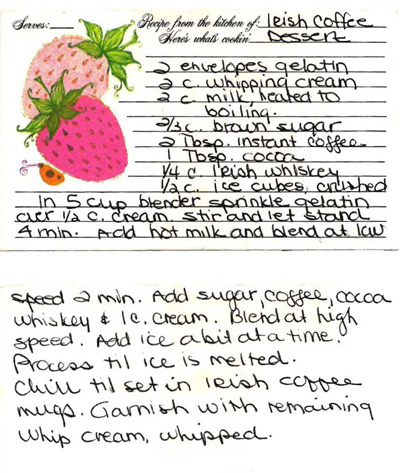 Serves: Recipe from the kitchen of: Irish Coffee
Here's whats cookin' Dessert
2 envelopes gelatin
2 c. whipping cream
2 c. milk, heated to
boiling.
2/3 c. brown sugar
2 Tbsp. instant coffee
1 Tbsp. cocoa
1/4 c. Irish whiskey
1/2 c. ice cubes, crushed
In 5 cup blender sprinkle gelatin
over 1/2 c. cream. stir and let stand
4 min. Add hot milk and blend at low
speed 2 min. Add sugar, coffee, cocoa
whiskey & 1c. cream. Blend at high
speed. Add ice a bit at a time.
Process til ice is melted.
Chill til set in Irish coffee
mugs. Garnish with remaining
whip cream, whipped.